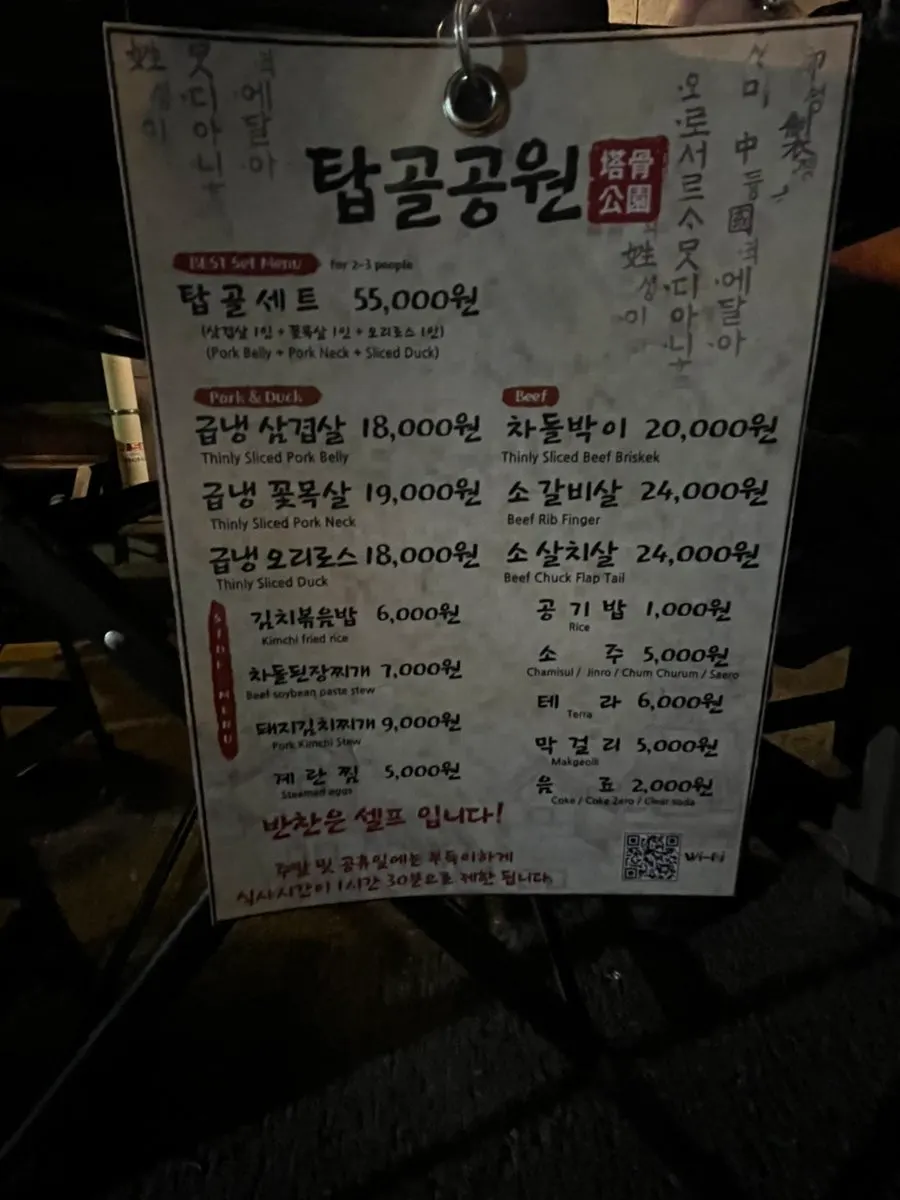 탑골공원
塔骨
公園
BEST Set Menu for 2~3 people
탑골세트 55,000원
(삼겹살 1인 + 꽃목살 1인 + 오리로스 1인)
(Pork Belly + Pork Neck + Sliced Duck)
Pork & Duck
급냉 삼겹살 18,000원
Thinly Sliced Pork Belly
급냉 꽃목살 19,000원
Thinly Sliced Pork Neck
급냉 오리로스 18,000원
Thinly Sliced Duck
Beef
차돌박이 20,000원
Thinly Sliced Beef Briskek
소 갈비살 24,000원
Beef Rib Finger
소 살치살 24,000원
Beef Chuck Flap Tail
SIDE MENU
김치볶음밥 6,000원
Kimchi fried rice
차돌된장찌개 7,000원
Beef soybean paste stew
돼지김치찌개 9,000원
Pork Kimchi Stew
계란찜 5,000원
Steamed eggs
공기밥 1,000원
Rice
소주 5,000원
Chamisul / Jinro / Chum Churum / Saero
테라 6,000원
Terra
막걸리 5,000원
Makgeolli
음료 2,000원
Coke / Coke Zero / Clear soda
반찬은 셀프 입니다!
주말 및 공휴일에는 부득이하게
식사시간이 1시간 30분으로 제한 됩니다.
Wi-Fi